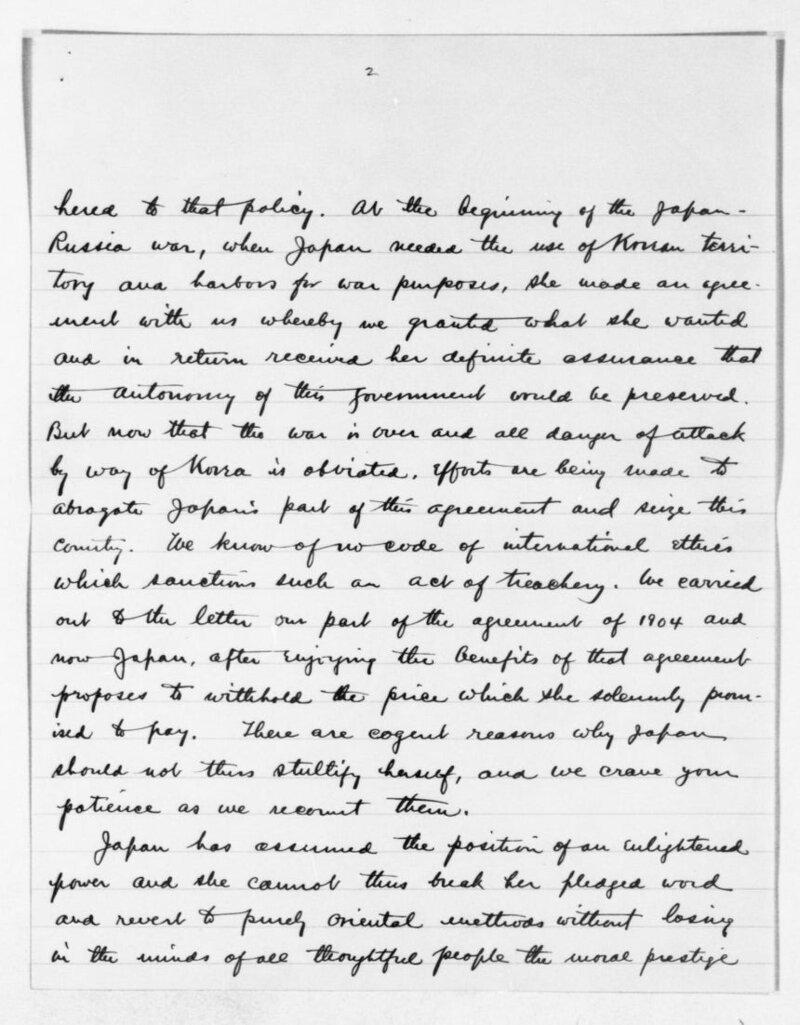 2
hered to that policy. At the beginning of the Japan-
Russia war, when Japan needed the use of Korean terri-
tory and harbors for war purposes, she made an agree-
ment with us whereby we granted what she wanted
and in return received her definite assurance that
the autonomy of this government would be preserved.
But now that the war is over and all danger of attack
by way of Korea is obviated, efforts are being made to
abrogate Japan's part of this agreement and seize this
country. We know of no code of international ethics
which sanctions such an act of treachery. We carried
out to the letter our part of the agreement of 1904 and
now Japan, after enjoying the benefits of that agreement
proposes to withhold the price which she solemnly prom-
ised to pay. There are cogent reasons why Japan
should not thus stultify herself, and we crave your
patience as we recount them.
Japan has assumed the position of an enlightened
power and she cannot thus break her pledged word
and revert to purely oriental methods without losing
in the minds of all thoughtful people the moral prestige